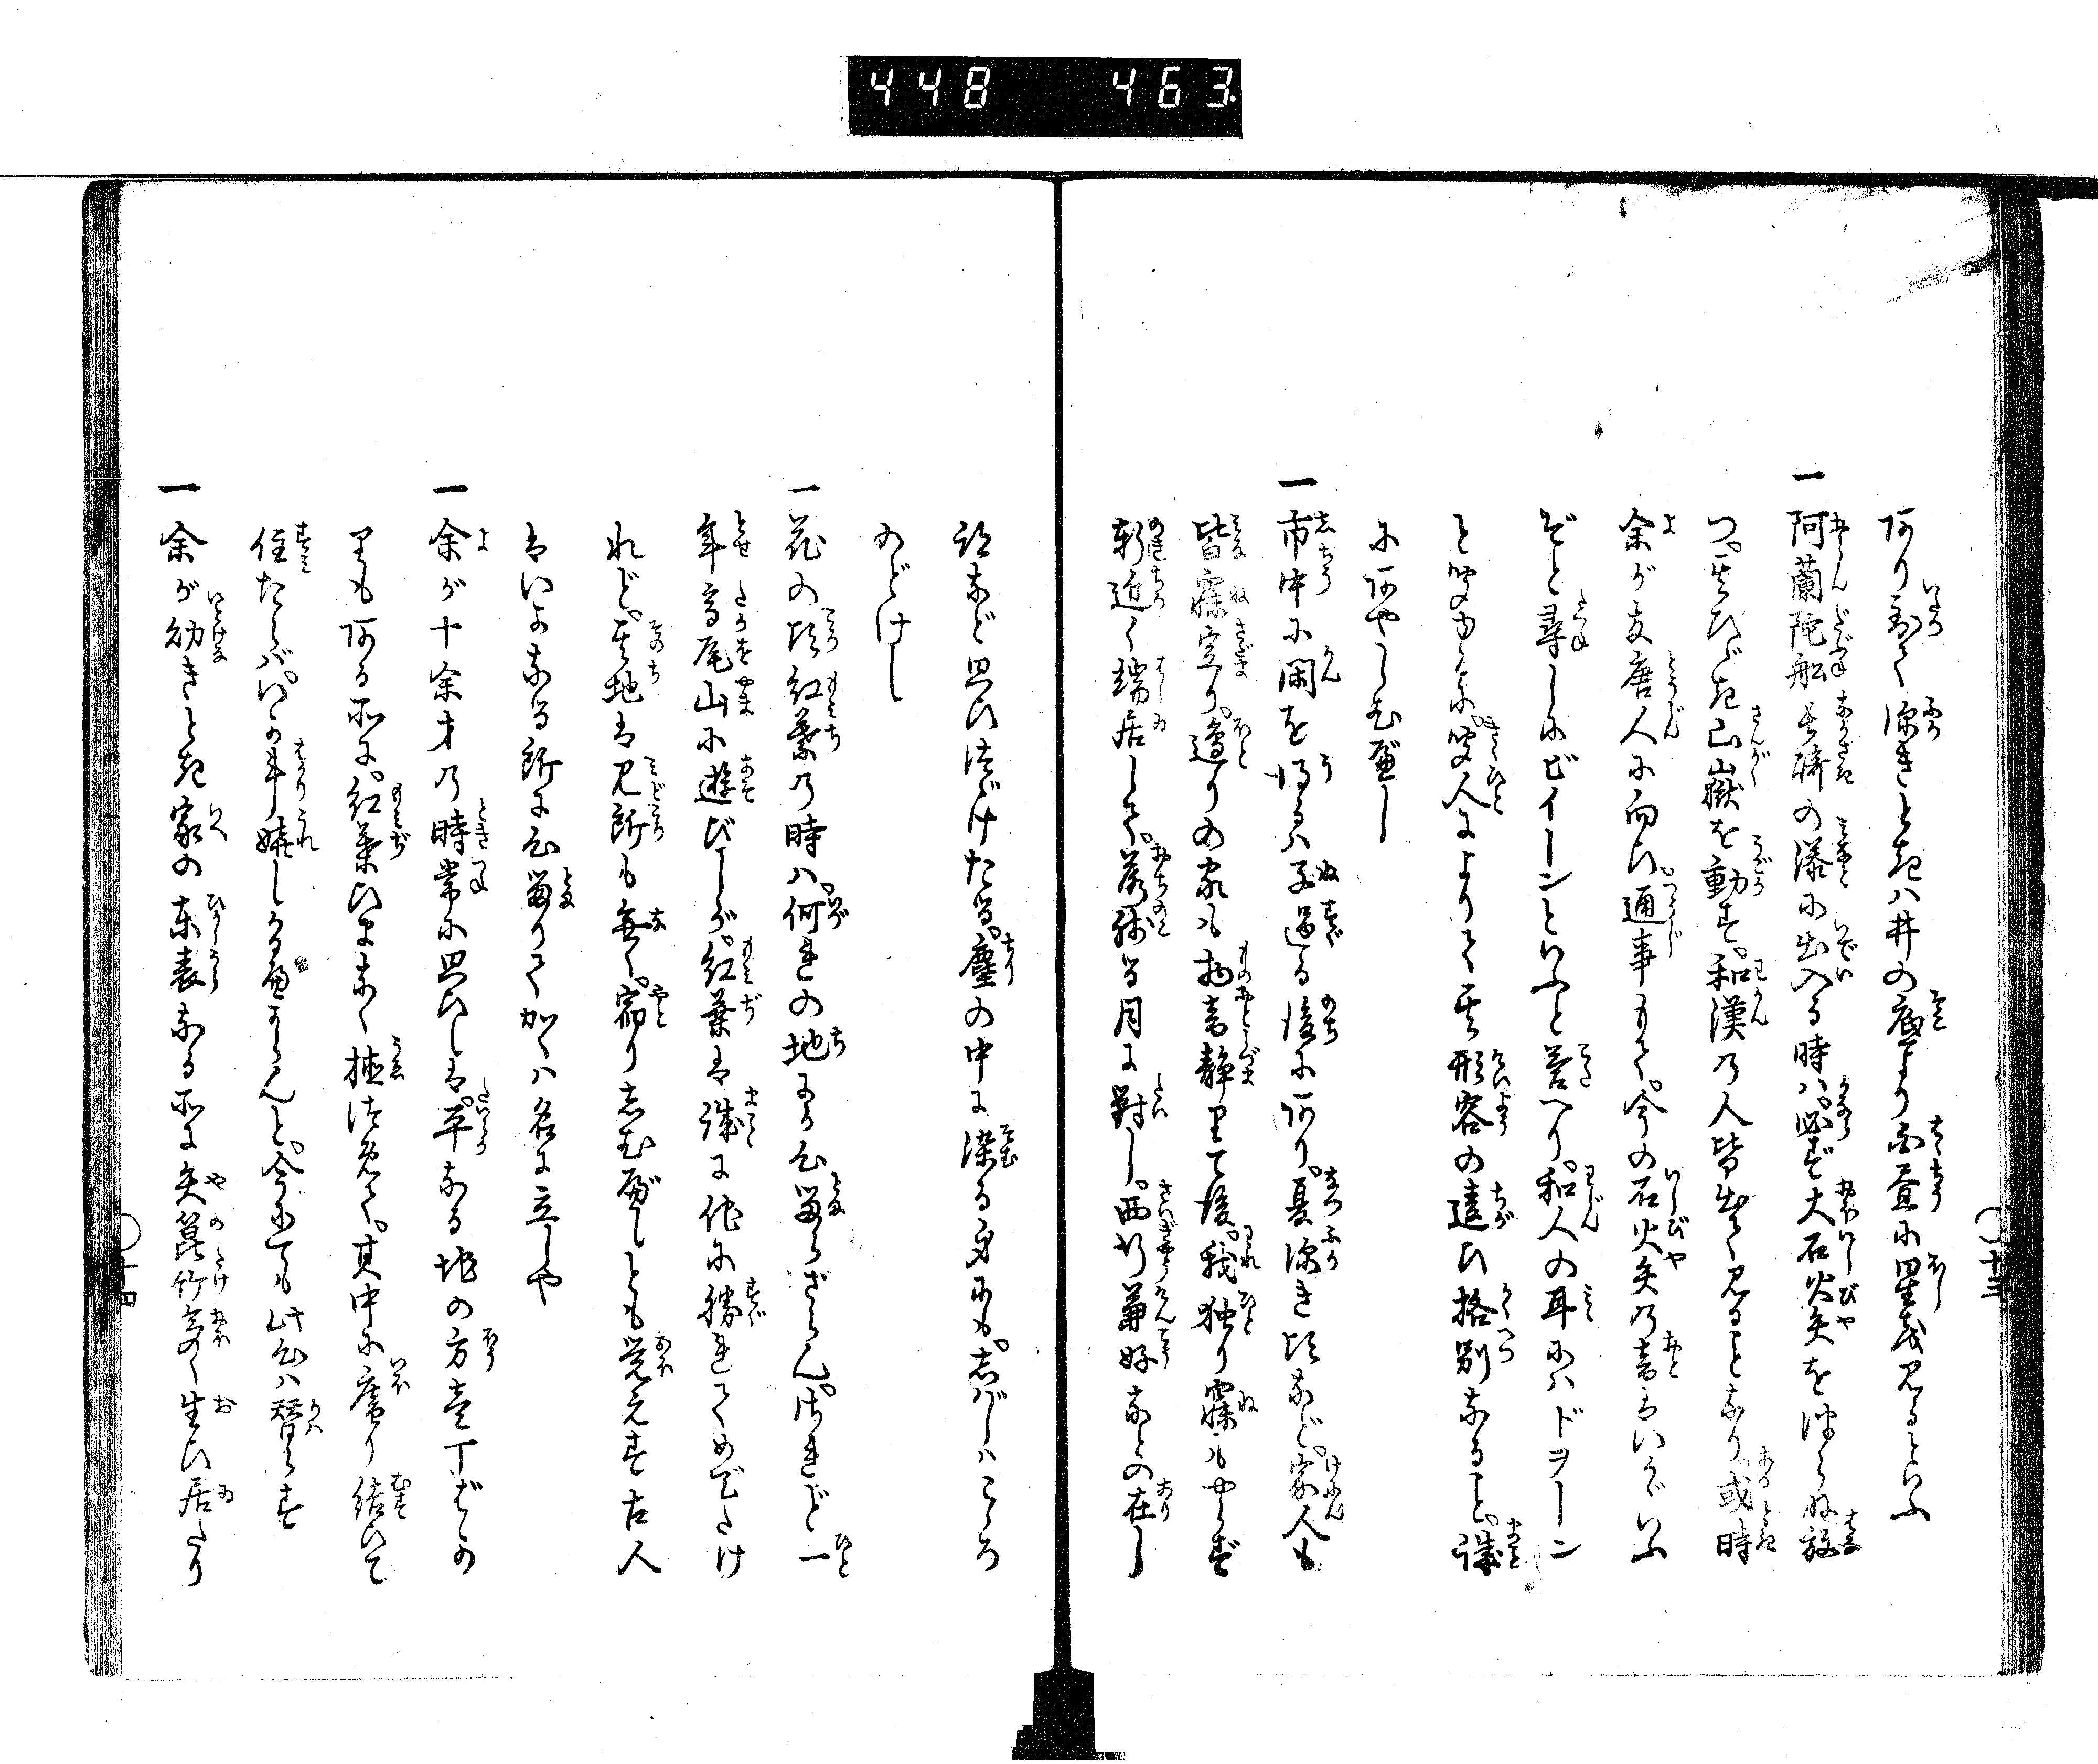 448 463.
阿り至て深きとき八井の底より白昼に星を見るといふ
一 阿蘭陀船長崎の湊に出入る時ハ必ず大石火矢を つらね放
つ其ひゞき山嶽を動す和漢の人皆出て見ることなり或時
余が友唐人に向ひ通事もて今の石火矢の音はいかゞいふ
ぞと尋しにビイーンといふと答へり和人の耳にハドヲーン
と聞ゆるに聞人によりて其形容の違ひ格別なること誠
にあやしむ可し
一 市中に閑を得るハ子過る後にあり夏深き頃など家人も
皆寐定り遶りの家も物音静りて後我独り寐もやらず
軒近く端居して落残る月に対し西行兼好などの在し
跡など思ひつゞけたる塵の中に染る身にも志ばしハこゝろ
のどけし
一 花の頃紅葉の時ハ何れの地にか心留らざらんされど一
年高尾山に遊びしが紅葉は誠に他に勝れてめでたけ
れど其地は見所も無く宿りしむべしとも覚えず古人
はいかなる所に心留りてかくハ名に立しや
一 余が十余才の時常に思ひしは平なる地の方壱丁ばかり
もある所に紅葉ひまなく植つめて其中に庵り結びて
住たらばいか斗嬉しかるべからんと今にても此心ハ替らず
一 余が幼きとき家の東表なる所に矢箆竹多く生ひ居たり
十三
十四